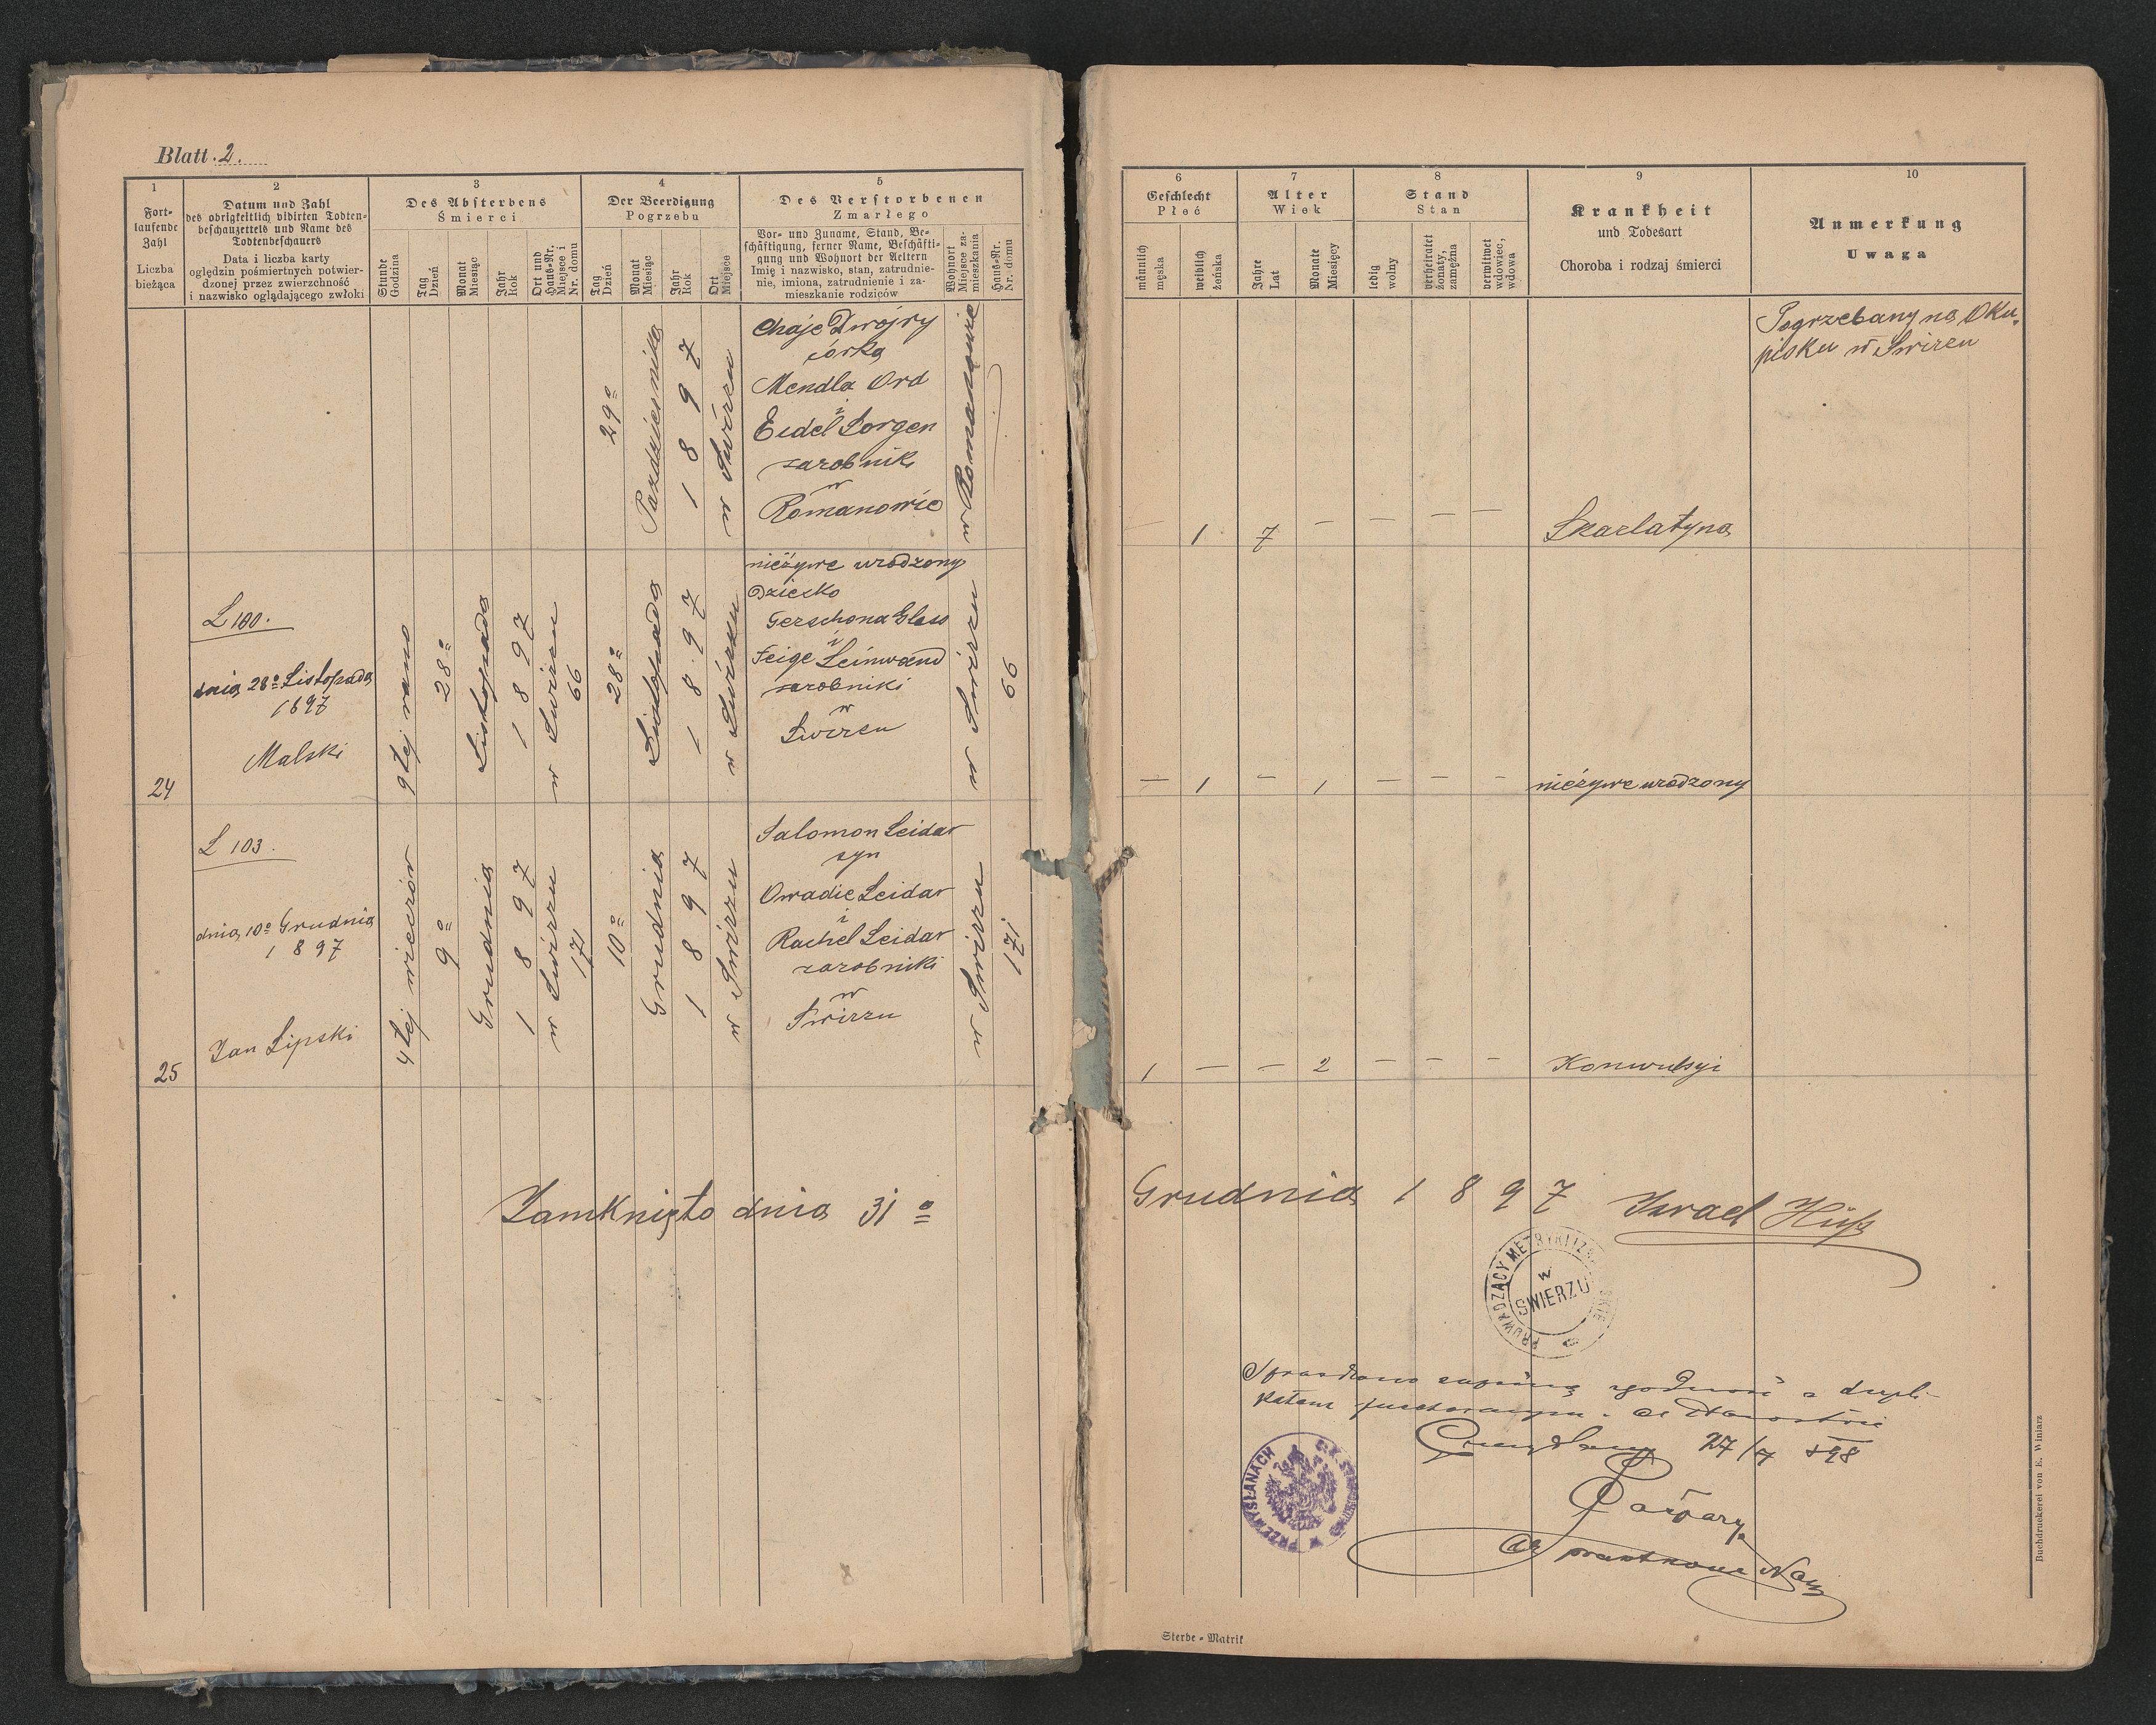 Blatt 2.
1
Fort-
laufende
Zahl
Liczba
bieżąca
2
Datum und Zahl
des obrigkeitlich vidirten Todten-
beschauzettels und Name des
Todtenbeschauers
Data i liczba karty
oględzin pośmiertnych potwier-
dzonej przez zwierzchność
i nazwisko oglądającego zwłoki
3
Des Absterbens
Śmierci
Stunde
Godzina
Tag
Dzień
Monat
Miesiąc
Jahr
Rok
Ort und
Haus-Nr.
Miejsce i
Nr. domu
4
Der Beerdigung
Pogrzebu
Tag
Dzień
Monat
Miesiąc
Jahr
Rok
Ort
Miejsce
5
Des Verstorbenen
Zmarłego
Vor- und Zuname, Stand, Be-
schäftigung, ferner Name, Beschäfti-
gung und Wohnort der Aeltern
Imię i nazwisko, stan, zatrudnie-
nie, imiona, zatrudnienie i za-
mieszkanie rodziców
Wohnort
Miejsce za-
mieszkania
Haus-Nr.
Nr. domu
29º
Pazdziernika
1897
w Swirzu
Chaje Dwojry
córka
Mendla Ord
i
Eidel Sorgen
zarobnik
w
Romanowie
w Romanowie
24
L 100.
dnia 28º Listopada
1897
Malski
9tej rano
28º
Listopada
1897
w Swirzu
66
28º
Listopada
1897
w Swirzu
nieżywe urodzony
Dziecko
Gerschona Glass
i
Feige Leinwand
zarobniki
w
Swirzu
w Swirzu
66
25
L 103.
dnia 10º Grudnia
1897
Jan Lipski
4tej wieczór
9º
Grudnia
1897
w Swirzu
171
10º
Grudnia
1897
w Swirzu
Salomon Leidar
syn
Owadie Leidar
i
Rachel Leidar
zarobniki
w
Swirzu
w Swirzu
171
Zamknięto dnia 31º
6
Geschlecht
Płeć
männlich
męska
weiblich
żeńska
7
Alter
Wiek
Jahre
Lat
Monate
Miesięcy
8
Stand
Stan
ledig
wolny
verheiratet
żonaty,
zamężna
verwitwet
wdowiec,
wdowa
9
Krankheit
und Todesart
Choroba i rodzaj śmierci
10
Anmerkung
Uwaga
Pogrzebany na Oku-
pisku w Swirzu
— 1 7 — — — — Skarlatyna
— 1 — 1 — — — nieżywe urodzony
1 — — 2 — — — Konwulsyi
Grudnia 1897 Israel Hüß
PROWADZĄCY METRYKI IZ
w
SWIERZU
Sprawdzono zupełną zgodność z dupli-
katem
27/7 898
C. K. STAROSTWO
W PRZEMYŚLANACH
Buchdruckerei von E. Winiarz
Sterbe-Matrik